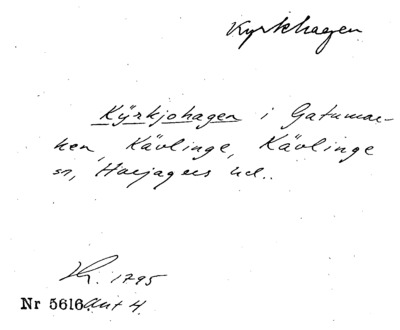 Kyrkhagen
Kÿrkjohagen i Gatumar-
ken, Kävlinge, Kävlinge
sn, Harjagers hd..
Kr. 1795
Nr 5616 Akt 4